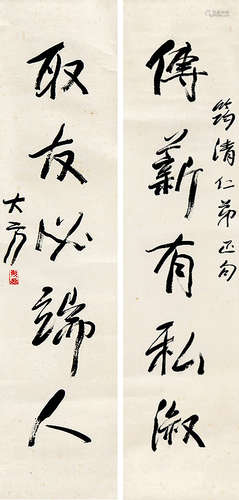 筠清仁弟正句
傅薪有私淑
取友必端人
大方